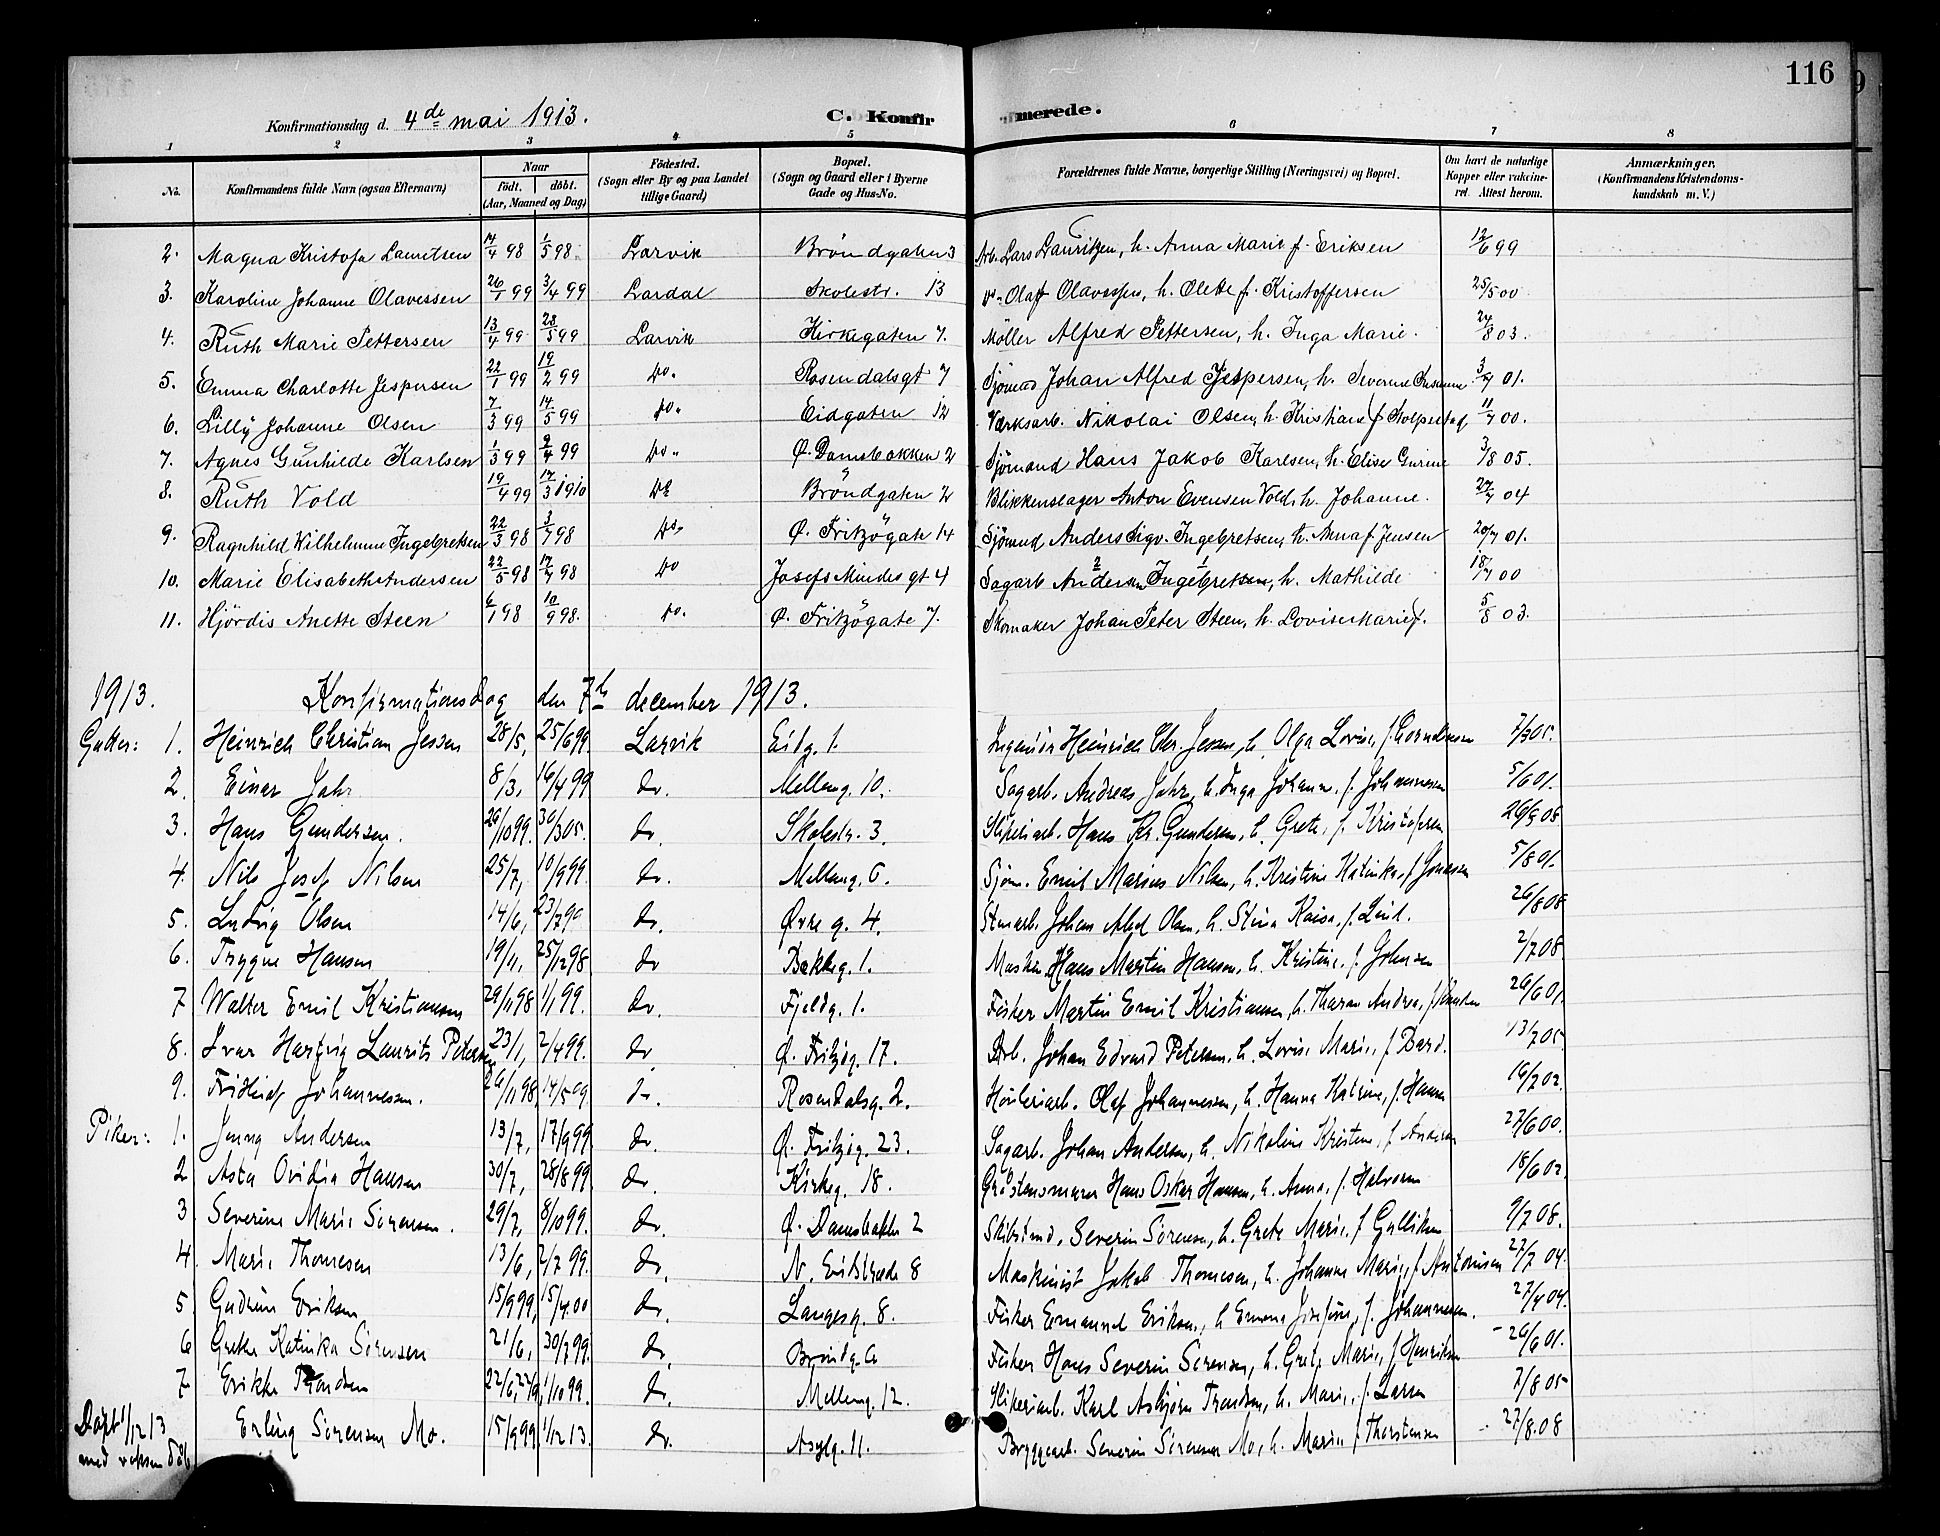 116
Konfirmationsdag d. 4de mai 1913. C. Konfirmerede.
1 2 3 4 5 6 7 8
No. Konfirmandens fulde Navn (ogsaa Efternavn) Naar födt. döbt. (Aar, Maaned og Dag) Födested. (Sogn eller By og paa Landet tillige Gaard) Bopæl. (Sogn og Gaard eller i Byerne Gade og Hus-No. Forældrenes fulde Navne, borgerlige Stilling (Næringsvei) og Bopæl. Om havt de naturlige Kopper eller vakcineret. Attest herom. Anmærkninger. (Konfirmandens Kristendomskundskab m. V.)
2. Magna Kristofa Lauritsen 14/4 98 1/5 98. Larvik Bröndgaten 3 Arb. Lars Lauritzen, h. Anna Marie f. Eriksen 12/6 99
3. Karoline Johanne Olavessen 26/1 99 3/4 99 Lardal Skolestr. 13 Do. Olaf Olavessen, h. Olette f. Kristoffersen 25/5 00
4. Ruth Marie Pettersen 13/4 99 28/5 99 Larvik Kirkegaten 7. Möller Alfred Pettersen, h. Inga Marie. 24/8 03.
5. Emma Charlotte Jespersen 22/1 99 19/2 99 Do. Rosendalsgt 7 Sjömand Johan Alfred Jespersen, h. Severine 01.
6. Lilly Johanne Olsen 7/3 99 14/5 99 Do. Eidgaten 12 Værksarb. Nikolai Olsen, h. Kristiane f. 11/7 00.
7. Agnes Gunhilde Karlsen 1/3 99 2/4 99 Do. Ø. Damsbakken 2 Sjömand Hans Jakob Karlsen, h. Elise Gurine 3/8 05.
8. Ruth Vold 19/4 99 17/3 1910 Do Bröndgaten 2 Blikkenslager Anton Evensen Vold, h. Johanne. 04
9. Ragnhild Wilhelmine Ingebretsen 22/3 98 3/7 98 Do. Ø. Fritzögate 14 Sjömand Anders Sigv. Ingebretsen, h. Anna f. Jensen 20/7 01.
10. Marie Elisabeth Andersen 22/5 98 17/7 98 Do Josefs Mindes gt 4 Sagarb Andersen Ingebretsen, h. Mathilde 18/7 00
11. Hjördis Anette Steen 6/1 98 10/9 98. Do. Ø. Fritzögate 7. Skomaker Johan Peter Steen, h. Lovise Marie f. 5/8 03.
1913. Konfirmationsdag den 7de december 1913.
Gutter: 1. Heinrich Christian Jessen 28/5, 25/6 99. Larvik Eidg. 1. Ingeniör Heinrich Chr. Jessen, h. Olga Lovise, f. 7/3 05.
2. Einar Jahr 8/3, 16/4 99 Do. Melleng. 10. Sagarb. Andreas Jahr, h. Inga Johanne, f. Johannessen 5/6 01.
3. Hans Gundersen. 29/10 99. 30/3 05. Do Skolestr. 3. Sliperiarb. Hans Kr. Gundersen, h. Grete, f. Kristofersen 26/9 08.
4. Nils Josef Nilsen 25/7, 10/9 99. Do. Melleng. 6. Sjöm. Emil Marius Nilsen, h. Kristine Katinka, f. Jonassen 5/8 01.
5. Ludvig Olsen 14/6, 23/7 99 Do Øvre g. 4. Stenarb. Johan Olsen, h. Stina Kaisa, f. Lind. 26/8 08
6. Trygve Hansen 19/11, 25/12 98 Do Bakkeg. 1. Maskin. Hans Martin Hansen, h. Kristine, f. Johnsen 2/7 08
7 Walter Emil Kristiansen 29/11 98 1/1 99. Do. Fjeldg. 1. Fisker Martin Emil Kristiansen, h. Andrea, f. 26/6 01.
8. Ivar Hartvig Laurits Petersen 23/1, 2/4 99. Do Ø. Fritzög. 17. Arb. Johan Edvard Petersen, h. Lovise Marie, f. Bard. 13/7 05.
9. Fridtjof Johannessen. 26/11 98, 14/5 99. Do. Rosendalsg. 2. Hövleriarb. Olaf Johannessen, h. Hanna Katrine, f. Hansen 16/7 02.
Piker: 1. Jenny Andersen 13/7, 17/9 99 Do. Ø. Fritzög. 23. Sagarb. Johan Andersen, h. Nikoline Kristine, f. Andersen 27/6 00.
2 Asta Ovidia Hansen 30/7, 28/8 99 Do. Kirkeg. 18. Gråstensmurer Hans Oskar Hansen, h. Anna, f. Halvorsen 18/6 02.
3 Severine Marie Sörensen. 29/7, 8/10 99. Do. Ø. Damsbakken 2 Skibstmd, Severin Sörensen, h. Grete Marie, f. Gulliksen 9/7 08.
4. Marie Thomesen 13/6, 2/7 99. Do. N. Eidstræde 8 Maskinist Jakob Thomesen, h. Johanne Marie, f. Antonisen 27/7 04.
5 Gudrun Eriksen 15/9 99, 15/4 00 Do. Langesg. 8. Fisker Emanuel Eriksen, h. Emma Josefine, f. Johannessen. 27/4 04.
6 Grethe Katinka Sörensen 21/6, 30/7 99. Do. Bröndg. 6 Fisker Hans Severin Sörensen, h. Grete Marie, f. Henriksen 26/6 01.
7 Erikke Trondsen 22/6, 1/10 99. Do. Melleng. 12. Sliperiarb. Karl Asbjörn Trondsen, h. Marie, f. Larsen 7/8 05
Döpt 1/12 13 med voksen dåb Erling Sörensen Mo. 15/9 99, 1/12 13. Do. Asylg. 11. Bryggearb. Severin Sörensen Mo, h. Marie f. Thorstensen 27/8.08